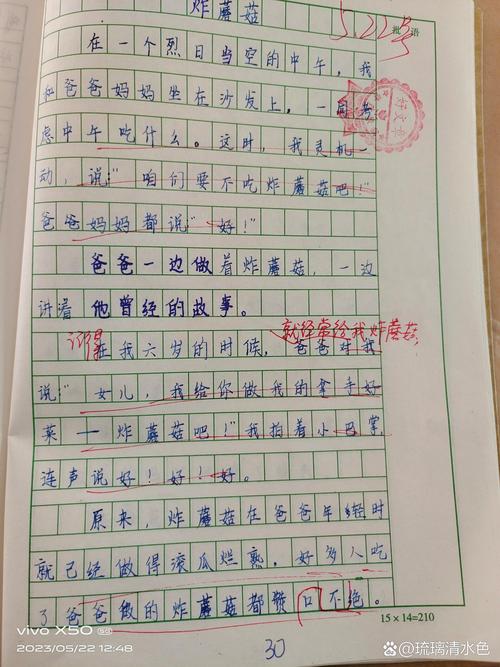 炸蘑菇
5.22号
批 语
在一个烈日当空的中午，我
和爸爸妈妈坐在沙发上，一同考
虑中午吃什么。这时，我灵机一
好文章
动，说："咱们要不吃炸蘑菇吧！"
爸爸妈妈都说"好！"
爸爸一边做着炸蘑菇，一边
讲着他曾经的故事。
就经常给我炸蘑菇，
记得
在我六岁的时候，爸爸对我
说"女儿，我给你做我的拿手好
菜——炸蘑菇吧！"我拍着小巴掌，
连声说好！好！好。
原来，炸蘑菇在爸爸年轻时
就已经做得滚瓜烂熟，好多人吃
了爸爸做的炸蘑菇都赞口不绝。
15×14=210
30
vivo X50
2023/05/22 12:48
琉璃清水色